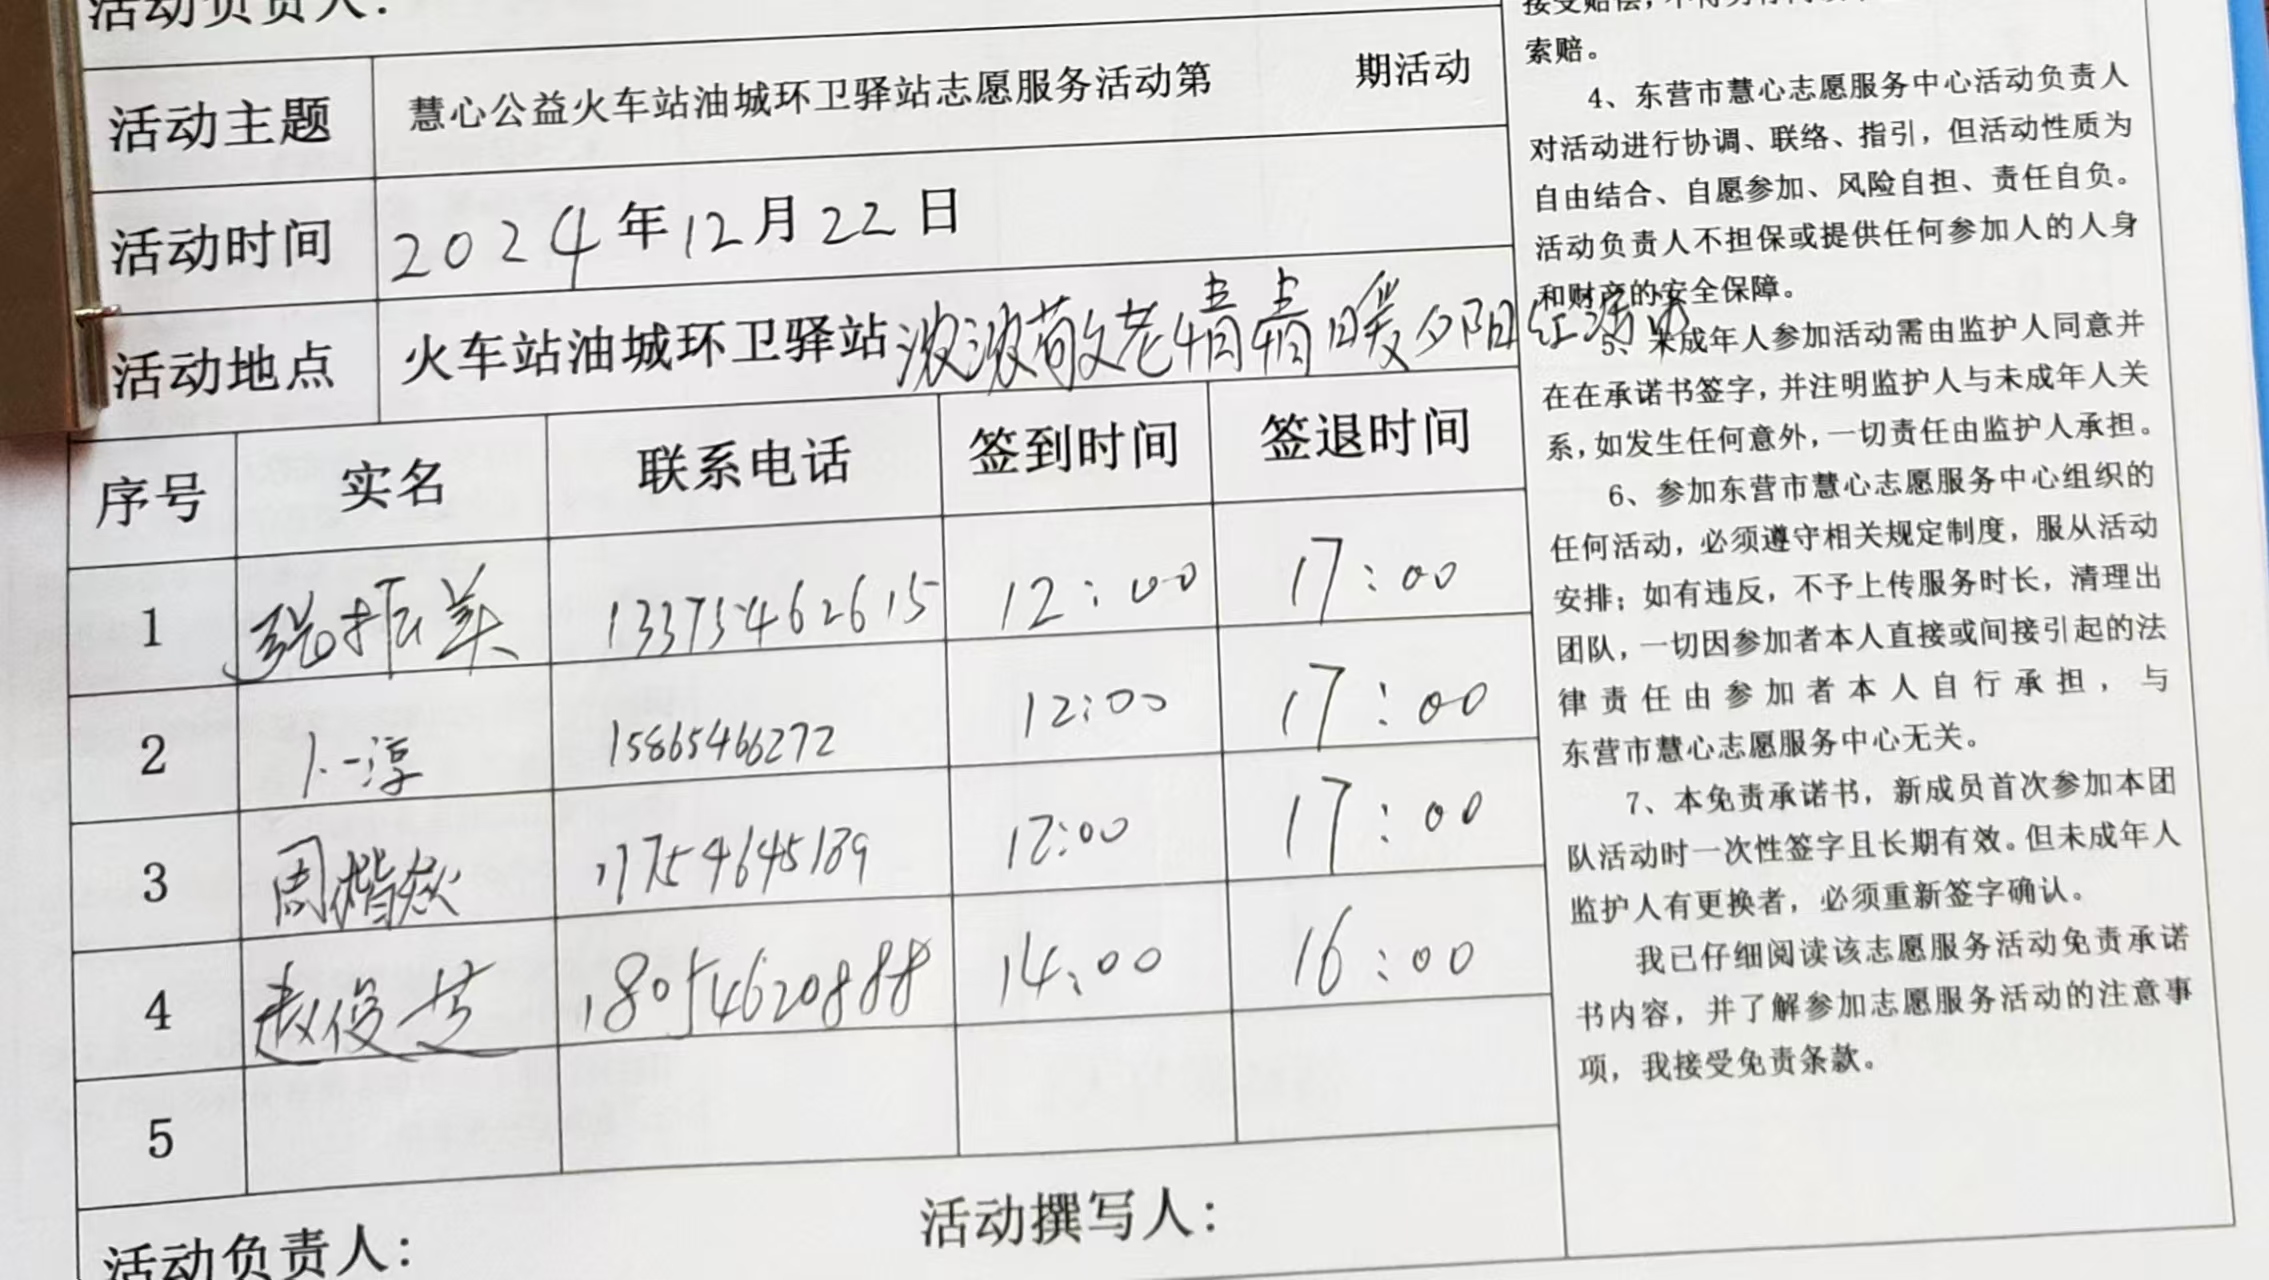 活动负责人：
活动主题 慧心公益火车站油城环卫驿站志愿服务活动第 期活动
活动时间 2024年12月22日
活动地点 火车站油城环卫驿站浓浓敬老情情暖夕阳红活动
序号 实名 联系电话 签到时间 签退时间
1 张振美 13375462615 12:00 17:00
2 卜一淳 15865466272 12:00 17:00
3 周楷焱 17754645189 12:00 17:00
4 赵俊芳 18054620888 14:00 16:00
5
活动撰写人：
活动负责人：
索赔。
4、东营市慧心志愿服务中心活动负责人
对活动进行协调、联络、指引，但活动性质为
自由结合、自愿参加、风险自担、责任自负。
活动负责人不担保或提供任何参加人的人身
和财产的安全保障。
5、未成年人参加活动需由监护人同意并
在在承诺书签字，并注明监护人与未成年人关
系，如发生任何意外，一切责任由监护人承担。
6、参加东营市慧心志愿服务中心组织的
任何活动，必须遵守相关规定制度，服从活动
安排；如有违反，不予上传服务时长，清理出
团队，一切因参加者本人直接或间接引起的法
律责任由参加者本人自行承担，与
东营市慧心志愿服务中心无关。
7、本免责承诺书，新成员首次参加本团
队活动时一次性签字且长期有效。但未成年人
监护人有更换者，必须重新签字确认。
我已仔细阅读该志愿服务活动免责承诺
书内容，并了解参加志愿服务活动的注意事
项，我接受免责条款。